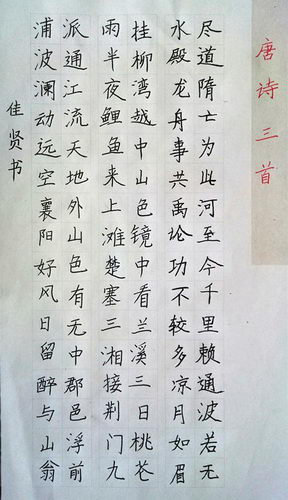 唐诗三首
尽道隋亡为此河至今千里赖通波若无
水殿龙舟事共禹论功不较多凉月如眉
挂柳湾越中山色镜中看兰溪三日桃花
雨半夜鲤鱼来上滩楚塞三湘接荆门九
派通江流天地外山色有无中郡邑浮前
浦波澜动远空襄阳好风日留醉与山翁
佳贤书